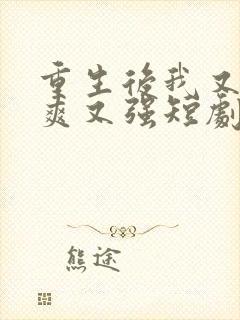 重生後我又
爽又強短劇
熊途